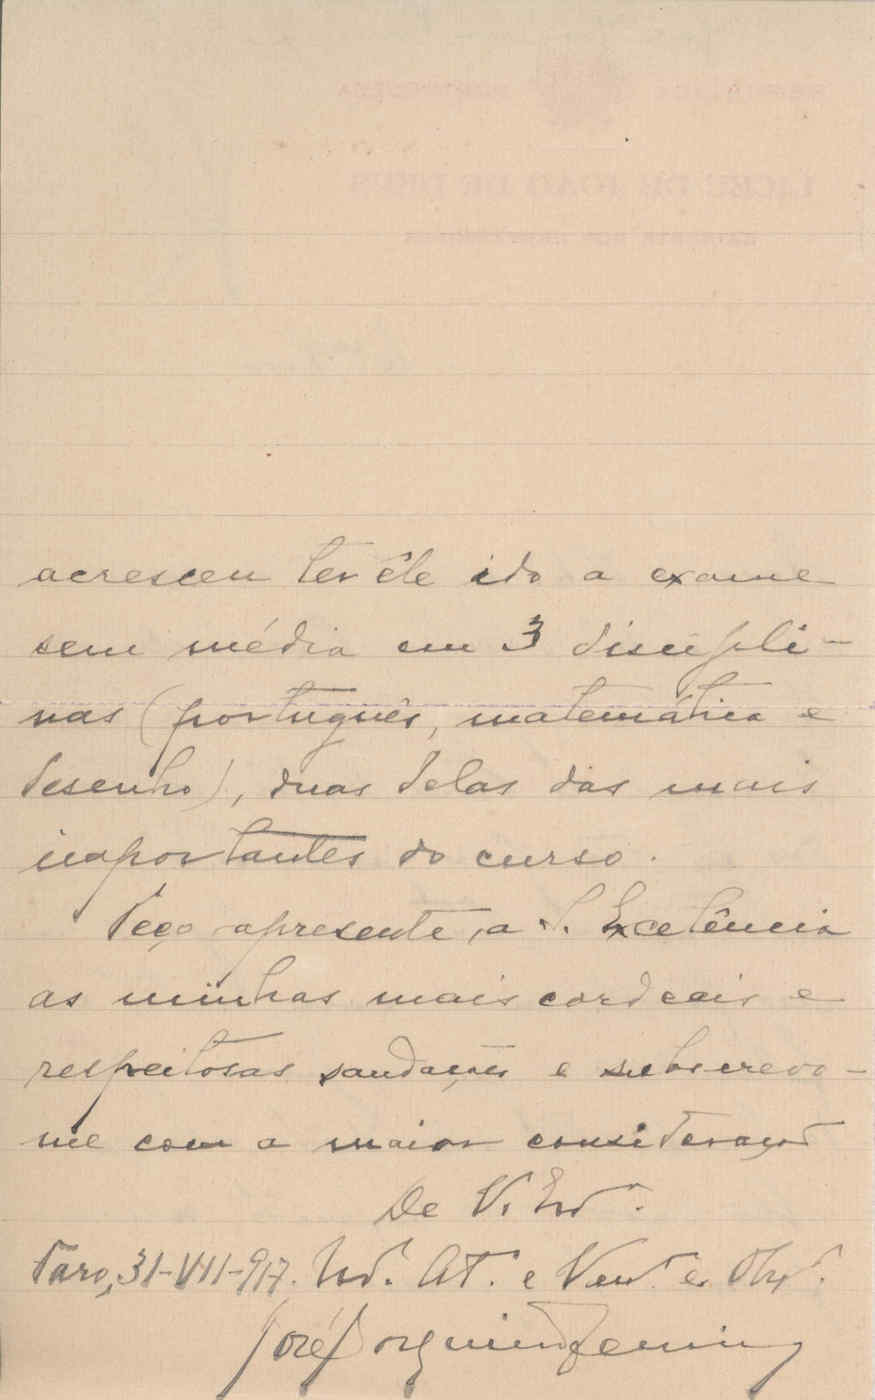 acresceu ter êle ido a exame
sem média em 3 discipli-
nas (português, matemática e
desenho), duas delas das mais
importantes do curso.
Peço apresente a S. Excelência
as minhas mais cordeais e
respeitosas saudações e subscrevo-
me com a maior consideração
De V. Exª.
Faro, 31-VII-917. At. e Venr. e Obrº.
José